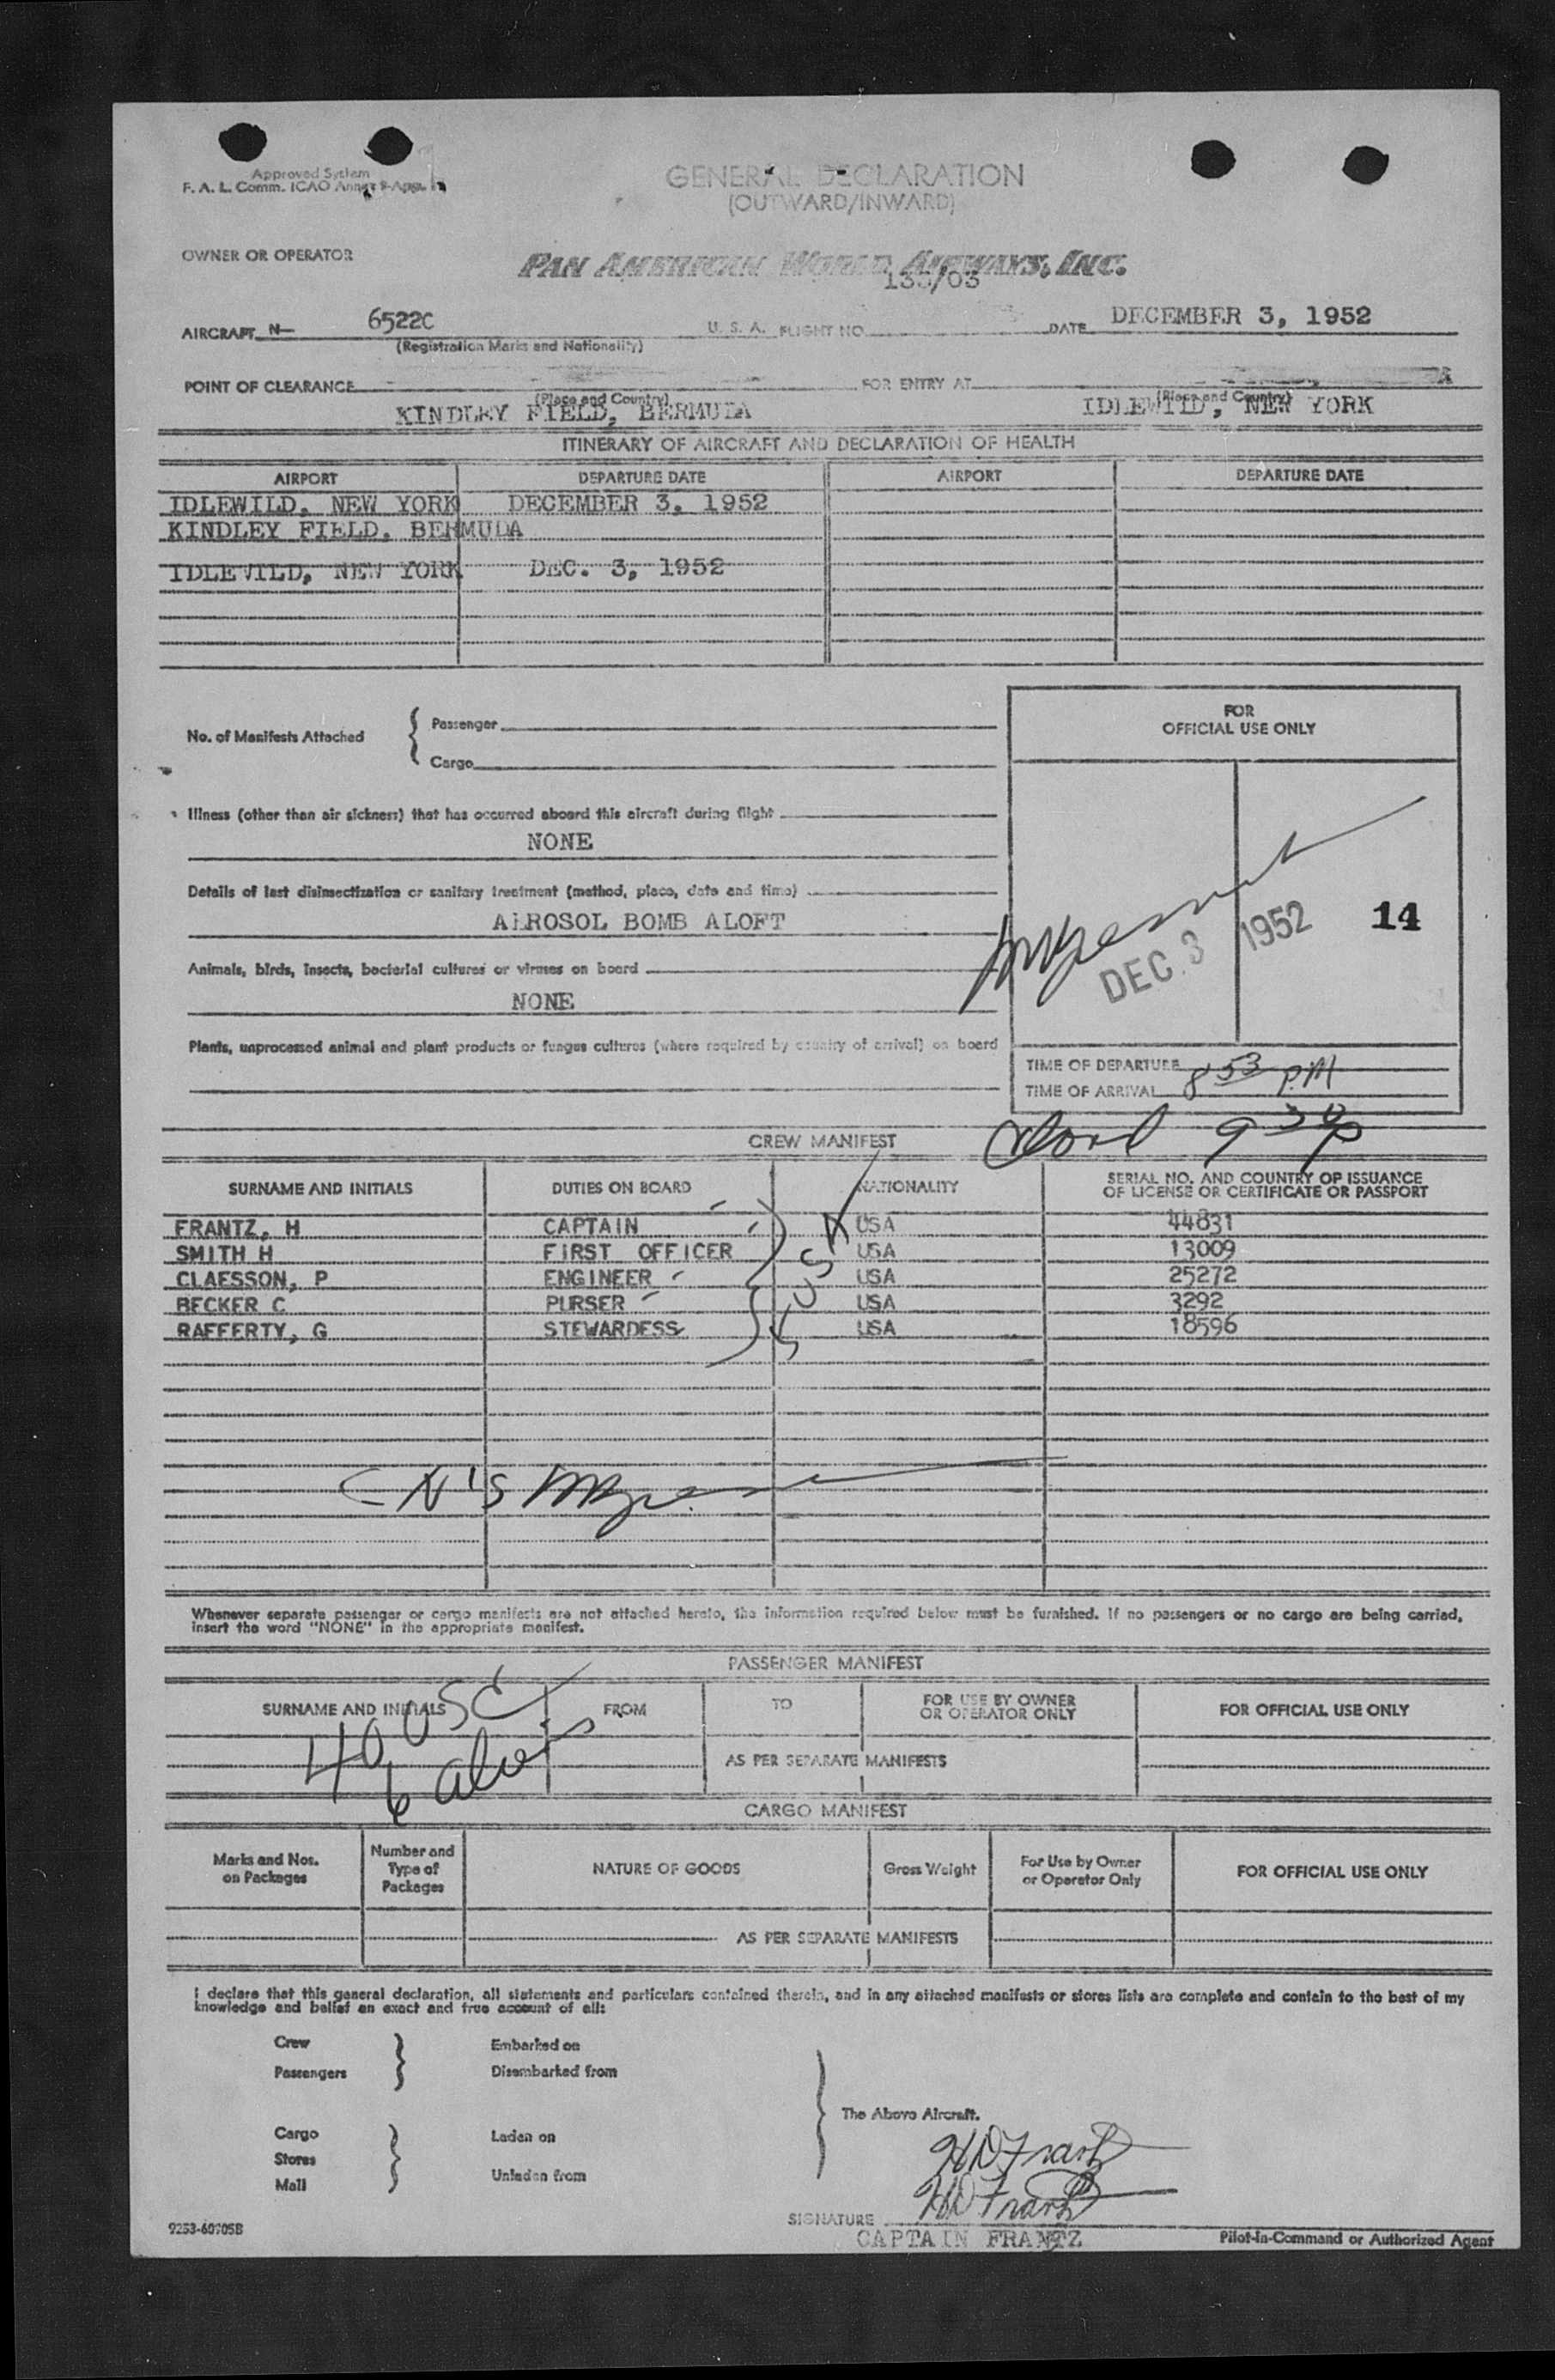 Approved System
F. A. L. Comm. ICAO Annex 9-App. 1
GENERAL DECLARATION
(OUTWARD/INWARD)
OWNER OR OPERATOR
PAN AMERICAN WORLD AIRWAYS, INC.
AIRCRAFT N- 6522C U. S. A. FLIGHT NO. /03 DATE DECEMBER 3, 1952
(Registration Marks and Nationality)
POINT OF CLEARANCE FOR ENTRY AT
(Place and Country) (Place and Country)
KINDLEY FIELD, BERMUDA IDLEWILD, NEW YORK
ITINERARY OF AIRCRAFT AND DECLARATION OF HEALTH
AIRPORT DEPARTURE DATE AIRPORT DEPARTURE DATE
IDLEWILD, NEW YORK DECEMBER 3, 1952
KINDLEY FIELD, BERMUDA
IDLEWILD, NEW YORK DEC. 3, 1952
No. of Manifests Attached
Passenger
Cargo
FOR
OFFICIAL USE ONLY
Illness (other than air sickness) that has occurred aboard this aircraft during flight
NONE
Details of last disinsectization or sanitary treatment (method, place, date and time)
AEROSOL BOMB ALOFT
DEC. 3 1952 14
Animals, birds, insects, bacterial cultures or viruses on board
NONE
Plants, unprocessed animal and plant products or fungus cultures (where required by country of arrival) on board
TIME OF DEPARTURE
TIME OF ARRIVAL 8 53 P.M
9 30 P
CREW MANIFEST
SURNAME AND INITIALS DUTIES ON BOARD NATIONALITY SERIAL NO. AND COUNTRY OF ISSUANCE
OF LICENSE OR CERTIFICATE OR PASSPORT
FRANTZ, H CAPTAIN USA 44831
SMITH H FIRST OFFICER USA 13009
CLAESSON, P ENGINEER USA 25272
BECKER C PURSER USA 3292
RAFFERTY, G STEWARDESS USA 18596
5 USA
Whenever separate passenger or cargo manifests are not attached hereto, the information required below must be furnished. If no passengers or no cargo are being carried,
insert the word "NONE" in the appropriate manifest.
PASSENGER MANIFEST
SURNAME AND INITIALS FROM TO FOR USE BY OWNER
OR OPERATOR ONLY FOR OFFICIAL USE ONLY
40 USC
6 aliens
AS PER SEPARATE MANIFESTS
CARGO MANIFEST
Marks and Nos.
on Packages Number and
Type of
Packages NATURE OF GOODS Gross Weight For Use by Owner
or Operator Only FOR OFFICIAL USE ONLY
AS PER SEPARATE MANIFESTS
I declare that this general declaration, all statements and particulars contained therein, and in any attached manifests or stores lists are complete and contain to the best of my
knowledge and belief an exact and true account of all:
Crew Embarked on
Passengers Disembarked from
The Above Aircraft.
Cargo Laden on
Stores
Mail Unladen from
HD Frantz
HD Frantz
SIGNATURE
CAPTAIN FRANTZ
Pilot-in-Command or Authorized Agent
9253-60705B